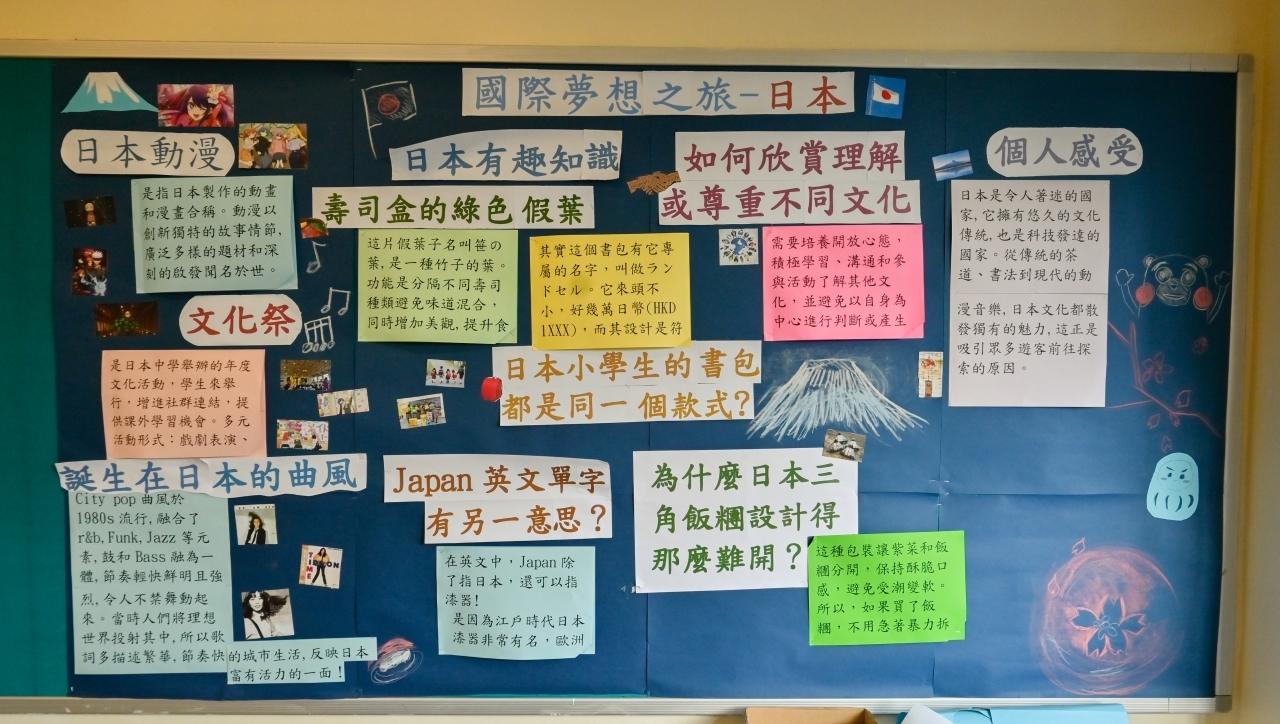 國際夢想之旅-日本
日本動漫
是指日本製作的動畫
和漫畫合稱。動漫以
創新獨特的故事情節,
廣泛多樣的題材和深
刻的啟發聞名於世。
文化祭
是日本中學舉辦的年度
文化活動，學生來舉
行，增進社群連結，提
供課外學習機會。多元
活動形式：戲劇表演、
誕生在日本的曲風
City pop 曲風於
1980s 流行, 融合了
r&b, Funk, Jazz 等元
素, 鼓和 Bass 融為一
體, 節奏輕快鮮明且強
烈, 令人不禁舞動起
來。當時人們將理想
世界投射其中, 所以歌
詞多描述繁華, 節奏快的城市生活, 反映日本
富有活力的一面！
日本有趣知識
壽司盒的綠色假葉
這片假葉子名叫笹の
葉, 是一種竹子的葉。
功能是分隔不同壽司
種類避免味道混合，
同時增加美觀, 提升食
其實這個書包有它專
屬的名字，叫做ラン
ドセル。它來頭不
小，好幾萬日幣(HKD
1XXX)，而其設計是符
日本小學生的書包
都是同一個款式?
Japan 英文單字
有另一意思？
在英文中，Japan 除
了指日本，還可以指
漆器!
是因為江戶時代日本
漆器非常有名，歐洲
如何欣賞理解
或尊重不同文化
需要培養開放心態，
積極學習、溝通和參
與活動了解其他文
化，並避免以自身為
中心進行判斷或產生
為什麼日本三
角飯糰設計得
那麼難開？
這種包裝讓紫菜和飯
糰分開，保持酥脆口
感，避免受潮變軟。
所以，如果買了飯
糰，不用急著暴力拆
個人感受
日本是令人著迷的國
家, 它擁有悠久的文化
傳統, 也是科技發達的
國家。從傳統的茶
道、書法到現代的動
漫音樂, 日本文化都散
發獨有的魅力, 這正是
吸引眾多遊客前往探
索的原因。